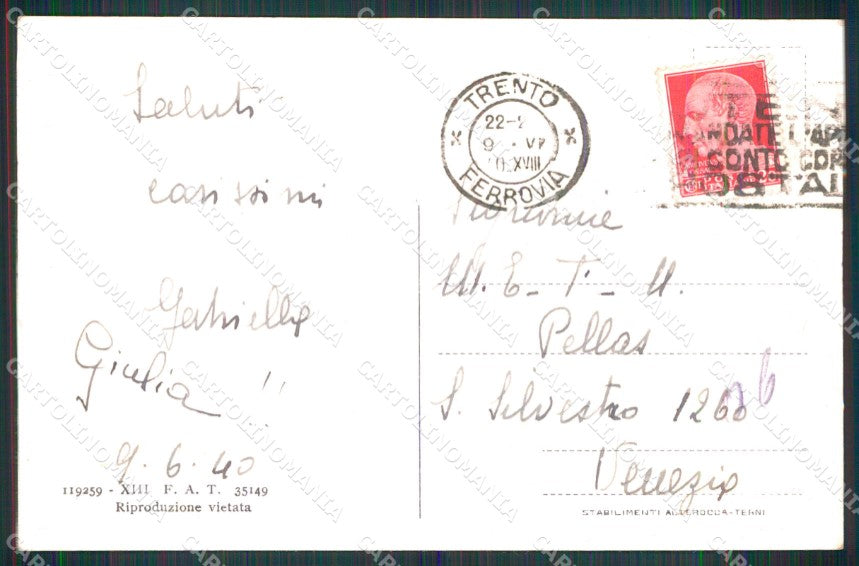 Saluti
carissimi
Gabriella
Giulia
9. 6. 40
119259 - XIII F. A. T. 35149
Riproduzione vietata
TRENTO
22-
9 VI
XVIII
FERROVIA
CONTO COR
POSTAL
M. E - T - U.
Pellas
S. Silvestro 1260
Venezia
STABILIMENTI ALTEROCCA-TERNI
CARTOLINOMANIA